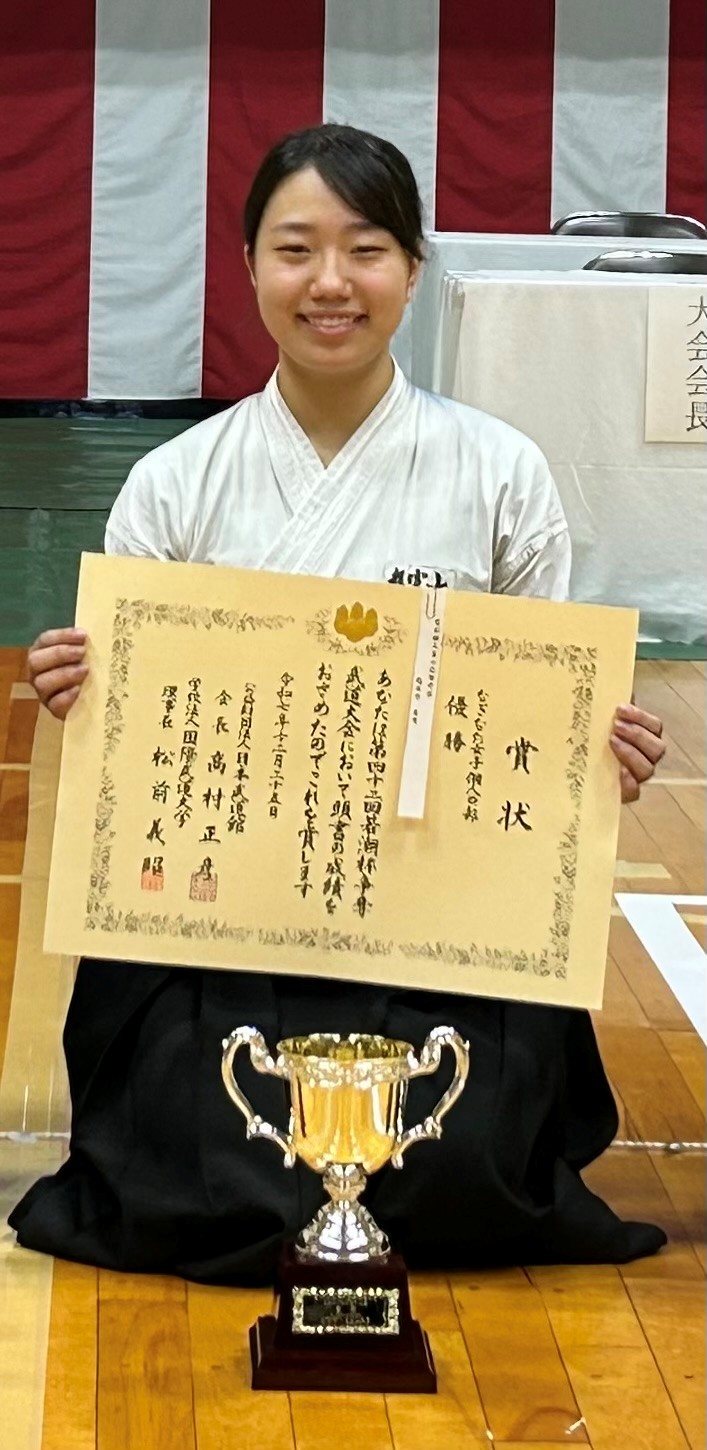 大会会長
賞状
なぎなた女子個人の部
優勝
あなたは第四十二回若潮杯争奪
武道大会において頭書の成績を
おさめたのでこれを賞します
令和七年十二月二十五日
公益財団法人日本武道館
会長 高村正彦
学校法人国際武道大学
理事長 松前義昭